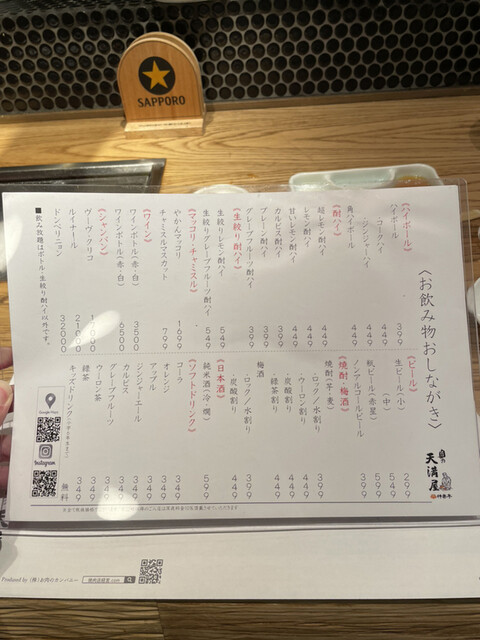 SAPPORO
〈お飲み物おしながき〉
《ハイボール》
ハイボール 399
・コークハイ 449
・ジンジャーハイ 449
角ハイボール 449
《酎ハイ》
超レモン酎ハイ 449
レモン酎ハイ 449
甘いレモン酎ハイ 449
カルピス酎ハイ 399
プレーン酎ハイ 399
グレープフルーツ酎ハイ 399
《生絞り酎ハイ》
生絞りレモン酎ハイ 549
生絞りグレープフルーツ酎ハイ 549
《マッコリ・チャミスル》
やかんマッコリ 1699
チャミスルマスカット 799
《ワイン》
ワインボトル(赤・白) 3500
ワインボトル(赤・白) 6500
《シャンパン》
ヴーヴ・クリコ
ルイナール 21000
ドンペリニョン 32000
■飲み放題はボトル・生絞り酎ハイ以外です。
《ビール》
生ビール(小) 299
(中) 549
瓶ビール(赤星) 599
ノンアルコールビール 399
《焼酎・梅酒》
焼酎(芋・麦)
・ロック/水割り 399
・ウーロン割り 449
・炭酸割り 449
・緑茶割り 449
梅酒
・ロック/水割り 399
・炭酸割り 449
《日本酒》
純米酒(冷・燗) 599
《ソフトドリンク》
コーラ 349
オレンジ 349
アップル 349
ジンジャーエール 349
カルピス 349
グレープフルーツ 349
ウーロン茶 349
緑茶 349
キッズドリンク 無料
天満屋
Google Maps
Instagram
Produced by (株)お肉のカンパニー